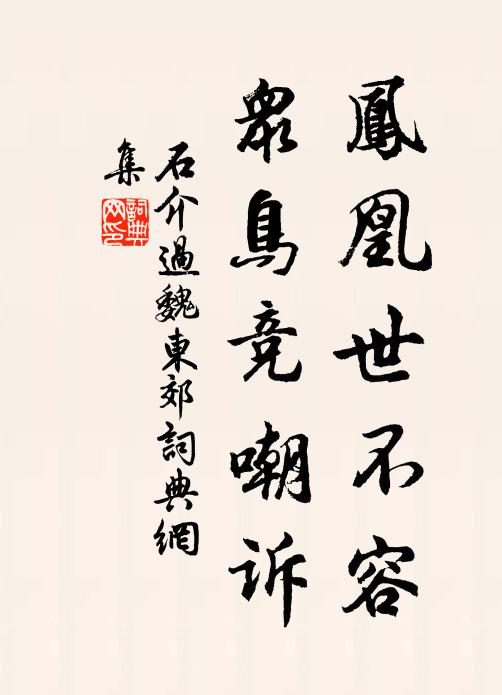 鳳凰世不容
眾鳥競嘲诉
石介過魏東郊詞典網
集
詞典
网印